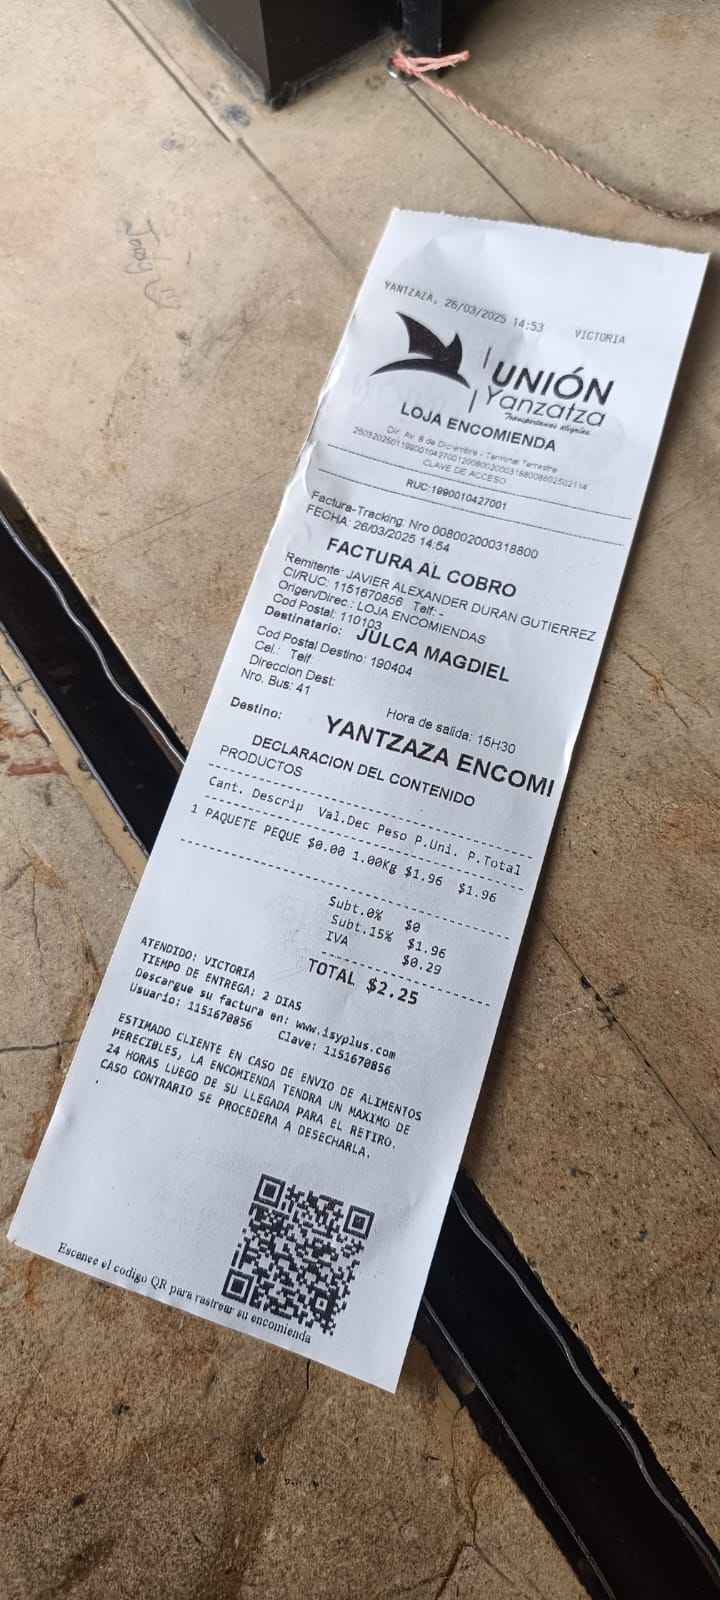 YANTZAZA, 26/03/2025 14:53 VICTORIA
UNIÓN
Yanzatza
Transportamos alegrías
LOJA ENCOMIENDA
Dir. Av. 8 de Diciembre - Terminal Terrestre
CLAVE DE ACCESO
RUC:1990010427001
Factura-Tracking: Nro 008002000318800
FECHA: 26/03/2025 14:54
FACTURA AL COBRO
Remitente: JAVIER ALEXANDER DURAN GUTIERREZ
CI/RUC: 1151670856 Telf:-
Origen/Direc.: LOJA ENCOMIENDAS
Cod Postal: 110103
Destinatario: JULCA MAGDIEL
Cod Postal Destino: 190404
Cel.: Telf
Direccion Dest:
Nro. Bus: 41 Hora de salida: 15H30
Destino: YANTZAZA ENCOMI
DECLARACION DEL CONTENIDO
PRODUCTOS
Cant. Descrip Val.Dec Peso P.Uni. P.Total
1 PAQUETE PEQUE $0.00 1.00Kg $1.96 $1.96
Subt.0% $0
Subt.15% $1.96
IVA $0.29
TOTAL $2.25
ATENDIDO: VICTORIA
TIEMPO DE ENTREGA: 2 DIAS
Descargue su factura en: www.isyplus.com
Usuario: 1151670856 Clave: 1151670856
ESTIMADO CLIENTE EN CASO DE ENVIO DE ALIMENTOS
PERECIBLES, LA ENCOMIENDA TENDRA UN MAXIMO DE
24 HORAS LUEGO DE SU LLEGADA PARA EL RETIRO.
CASO CONTRARIO SE PROCEDERA A DESECHARLA.
.
Escanee el codigo QR para rastrear su encomienda